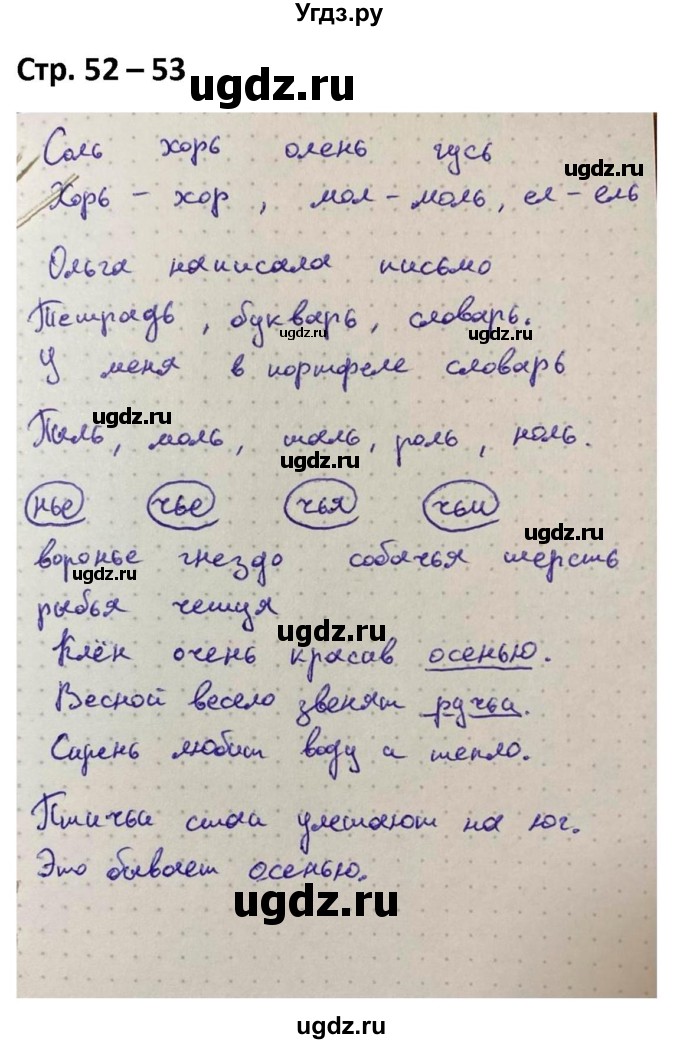 Угдз.ру
Стр. 52 – 53
ugdz.ru
Соль хорь олень гусь
ugdz.ru
Хорь – хор, мол – моль, ел – ель
Ольга написала письмо
Тетрадь, букварь, словарь.
ugdz.ru
У меня в портфеле словарь
ugdz.ru
Пыль, моль, шаль, роль, ноль.
ugdz.ru
нье чье чья чьи
ugdz.ru
воронье гнездо собачья шерсть
ugdz.ru
рыбья чешуя
ugdz.ru
Клён очень красив осенью.
Весной весело звенят ручьи.
Сирень любит воду и тепло.
Птичьи стаи улетают на юг.
Это бывает осенью.
ugdz.ru
ugdz.ru